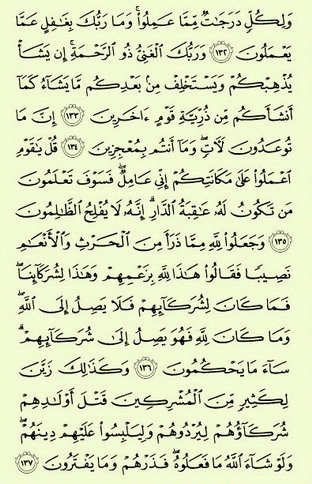 وَلِكُلٍّ دَرَجَٰتٌ مِّمَّا عَمِلُوا۟ ۚ وَمَا رَبُّكَ بِغَٰفِلٍ عَمَّا
يَعْمَلُونَ ١٣٢ وَرَبُّكَ ٱلْغَنِىُّ ذُو ٱلرَّحْمَةِ ۚ إِن يَشَأْ
يُذْهِبْكُمْ وَيَسْتَخْلِفْ مِنۢ بَعْدِكُم مَّا يَشَآءُ كَمَآ
أَنشَأَكُم مِّن ذُرِّيَّةِ قَوْمٍ ءَاخَرِينَ ١٣٣ إِنَّ مَا
تُوعَدُونَ لَءَاتٍ ۖ وَمَآ أَنتُم بِمُعْجِزِينَ ١٣٤ قُلْ يَٰقَوْمِ
ٱعْمَلُوا۟ عَلَىٰ مَكَانَتِكُمْ إِنِّى عَامِلٌ ۖ فَسَوْفَ تَعْلَمُونَ
مَن تَكُونُ لَهُۥ عَٰقِبَةُ ٱلدَّارِ ۗ إِنَّهُۥ لَا يُفْلِحُ ٱلظَّٰلِمُونَ
١٣٥ وَجَعَلُوا۟ لِلَّهِ مِمَّا ذَرَأَ مِنَ ٱلْحَرْثِ وَٱلْأَنْعَٰمِ
نَصِيبًا فَقَالُوا۟ هَٰذَا لِلَّهِ بِزَعْمِهِمْ وَهَٰذَا لِشُرَكَآئِنَا ۖ
فَمَا كَانَ لِشُرَكَآئِهِمْ فَلَا يَصِلُ إِلَى ٱللَّهِ ۖ
وَمَا كَانَ لِلَّهِ فَهُوَ يَصِلُ إِلَىٰ شُرَكَآئِهِمْ ۗ
سَآءَ مَا يَحْكُمُونَ ١٣٦ وَكَذَٰلِكَ زَيَّنَ
لِكَثِيرٍ مِّنَ ٱلْمُشْرِكِينَ قَتْلَ أَوْلَٰدِهِمْ
شُرَكَآؤُهُمْ لِيُرْدُوهُمْ وَلِيَلْبِسُوا۟ عَلَيْهِمْ دِينَهُمْ ۖ
وَلَوْ شَآءَ ٱللَّهُ مَا فَعَلُوهُ ۖ فَذَرْهُمْ وَمَا يَفْتَرُونَ ١٣٧